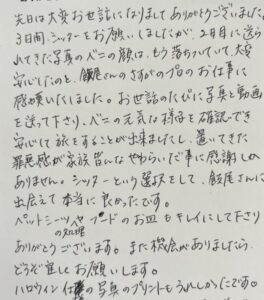 先日は大変お世話になりましてありがとうございました。
3日間、シッターをお願いしましたが、2日目に送ら
れてきた写真のベニの顔は、もう落ちついていて大変
安心したのと、飯尾さんのさすがのプロのお仕事に
感嘆いたしました。お世話のたびに写真と動画
を送って下さり、ベニの元気な様子を確認でき
安心して旅をすることが出来ましたし、置いてきた
罪悪感が家族皆んなやわらいだ事に感謝しか
ありません。シッターという選択をして、飯尾さんに
出会えて本当に良かったです。
ペットシーツの処理やフードのお皿もキレイにして下さり
ありがとうございます。また機会がありましたら
どうぞ宜しくお願いします。
ハロウィン仕様の写真のプリントもうれしかったです。